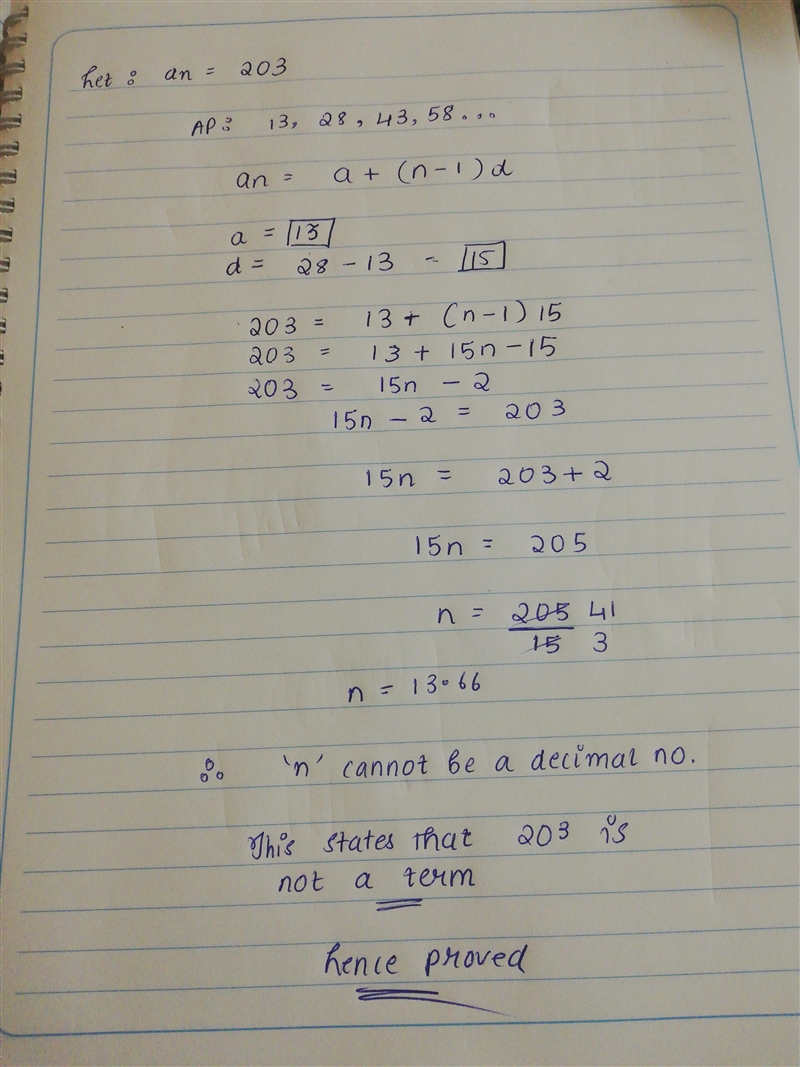 Let : an = 203
AP : 13, 28, 43, 58...
an = a + (n-1)d
a = 13
d = 28 - 13 = 15
203 = 13 + (n-1) 15
203 = 13 + 15n - 15
203 = 15n - 2
15n - 2 = 203
15n = 203 + 2
15n = 205
n = 205 41
15 3
n = 13.66
∴ 'n' cannot be a decimal no.
This states that 203 is
not a term
hence proved